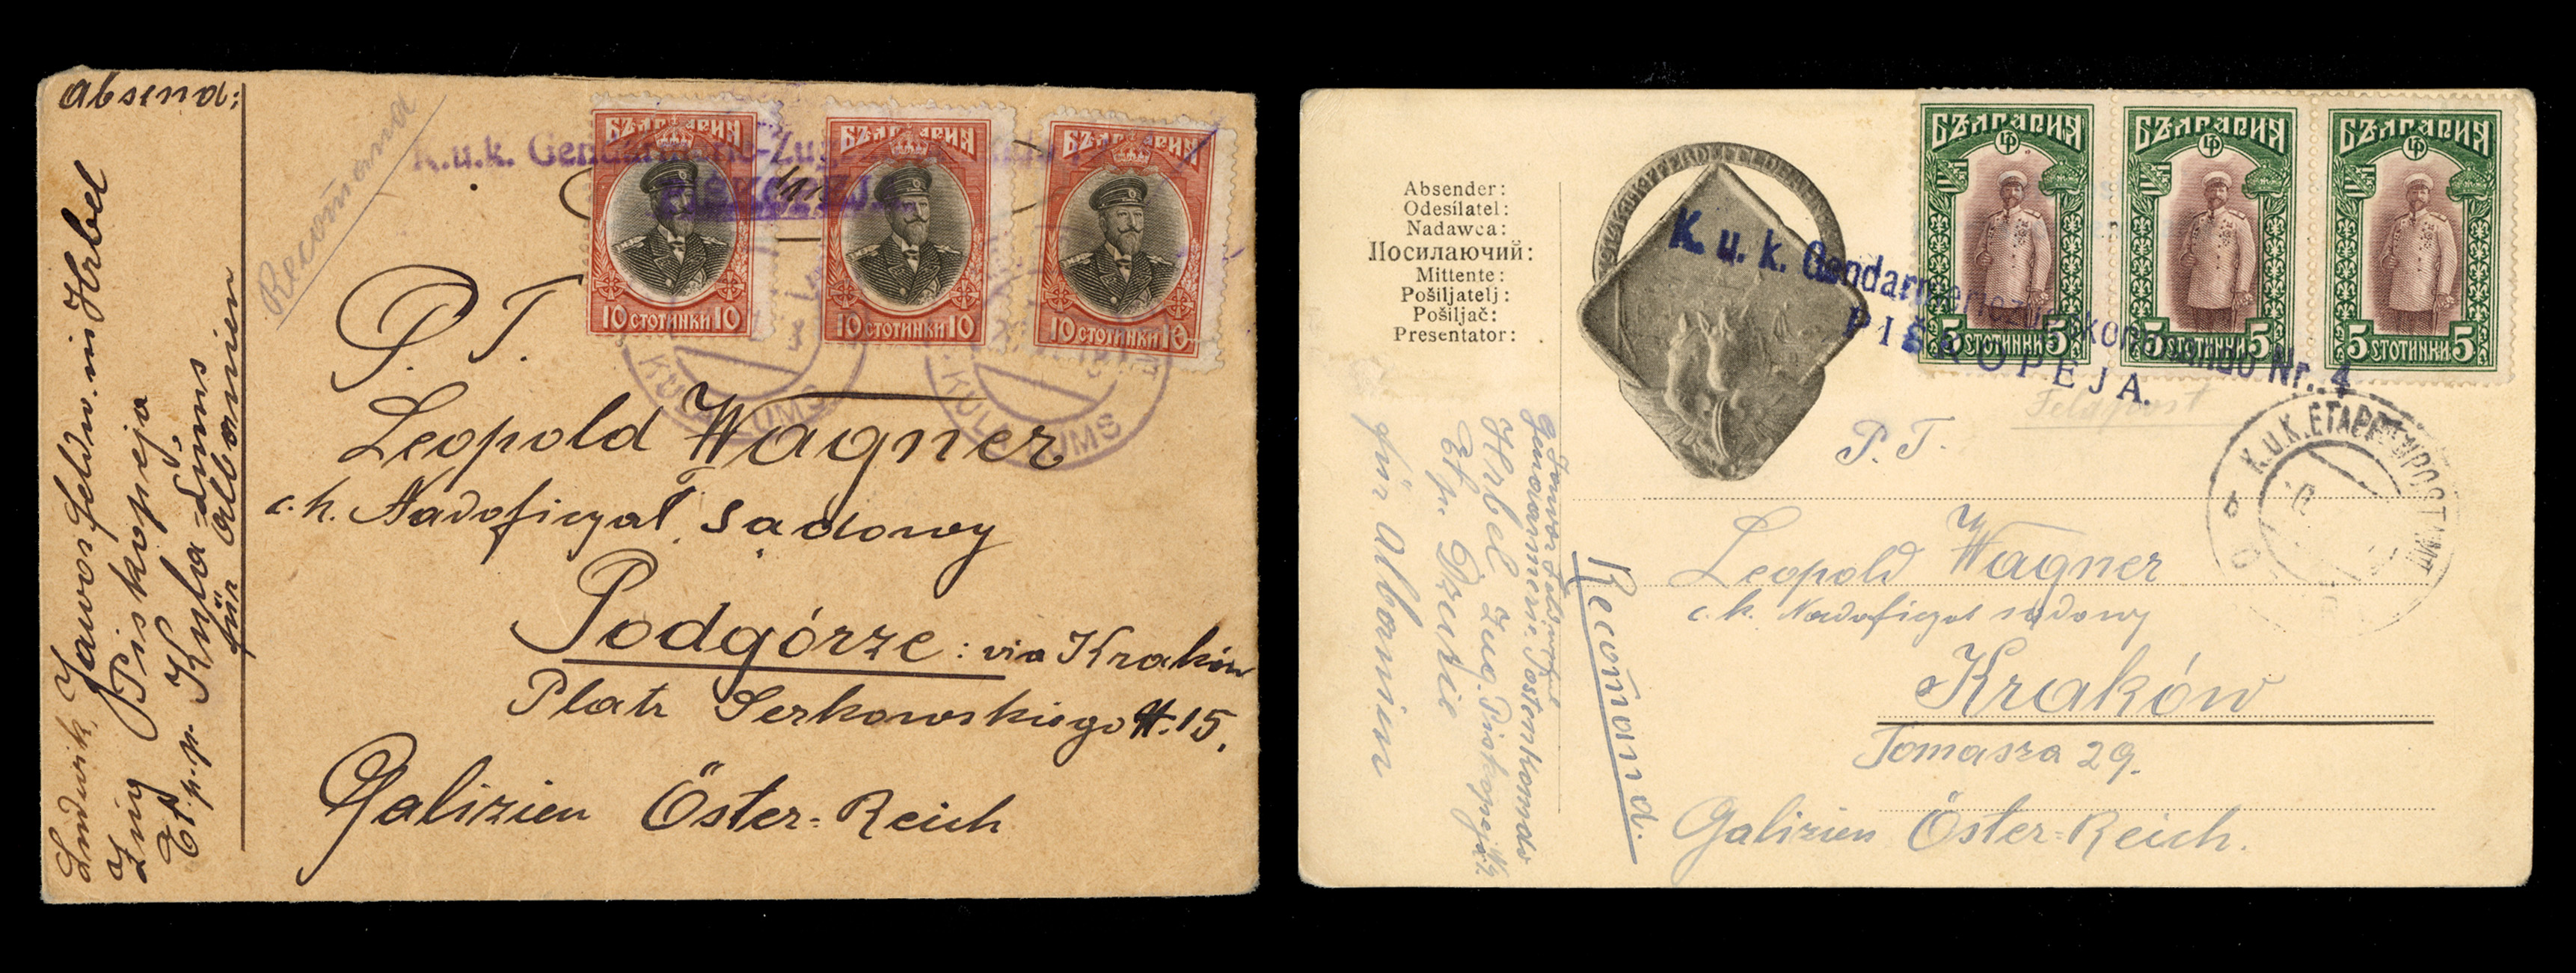 Absend:
Ludwik Jawor Feldw. in Hrbel
Zug Piskopeja
Et. p. p. Kula-Lums
für Albanien
Recomand
БЪЛГАРИЯ
10 СТОТИНКИ 10
БЪЛГАРИЯ
10 СТОТИНКИ 10
БЪЛГАРИЯ
10 СТОТИНКИ 10
K.u.k. Gendarmerie-Zugs
PISKOPEJA
KULA LUMS
KULA LUMS
P. T.
Leopold Wagner
c. k. Nadoficyał sądowy
Podgórze: via Kraków
Platz Serkowskiego N. 15.
Galizien Öster=Reich
Absender:
Odesílatel:
Nadawca:
Посилаючий:
Mittente:
Pošiljatelj:
Pošiljač:
Presentator:
Jawor Feldw.
Gendarmerie Postenkomdo
Hrbel Zug. Piskopeja
Et. p. Dzentie
für Albanien
Recomand.
БЪЛГАРИЯ
5 СТОТИНКИ 5
БЪЛГАРИЯ
5 СТОТИНКИ 5
БЪЛГАРИЯ
5 СТОТИНКИ 5
K. u. k. Gendarmeriezugskommando Nr. 4
PIŠKOPEJA.
Feldpost
K.u.K. ETAPPENPOSTAMT
P. T.
Leopold Wagner
c. k. Nadoficyał sądowy
Kraków
Tomasza 29.
Galizien Öster=Reich.